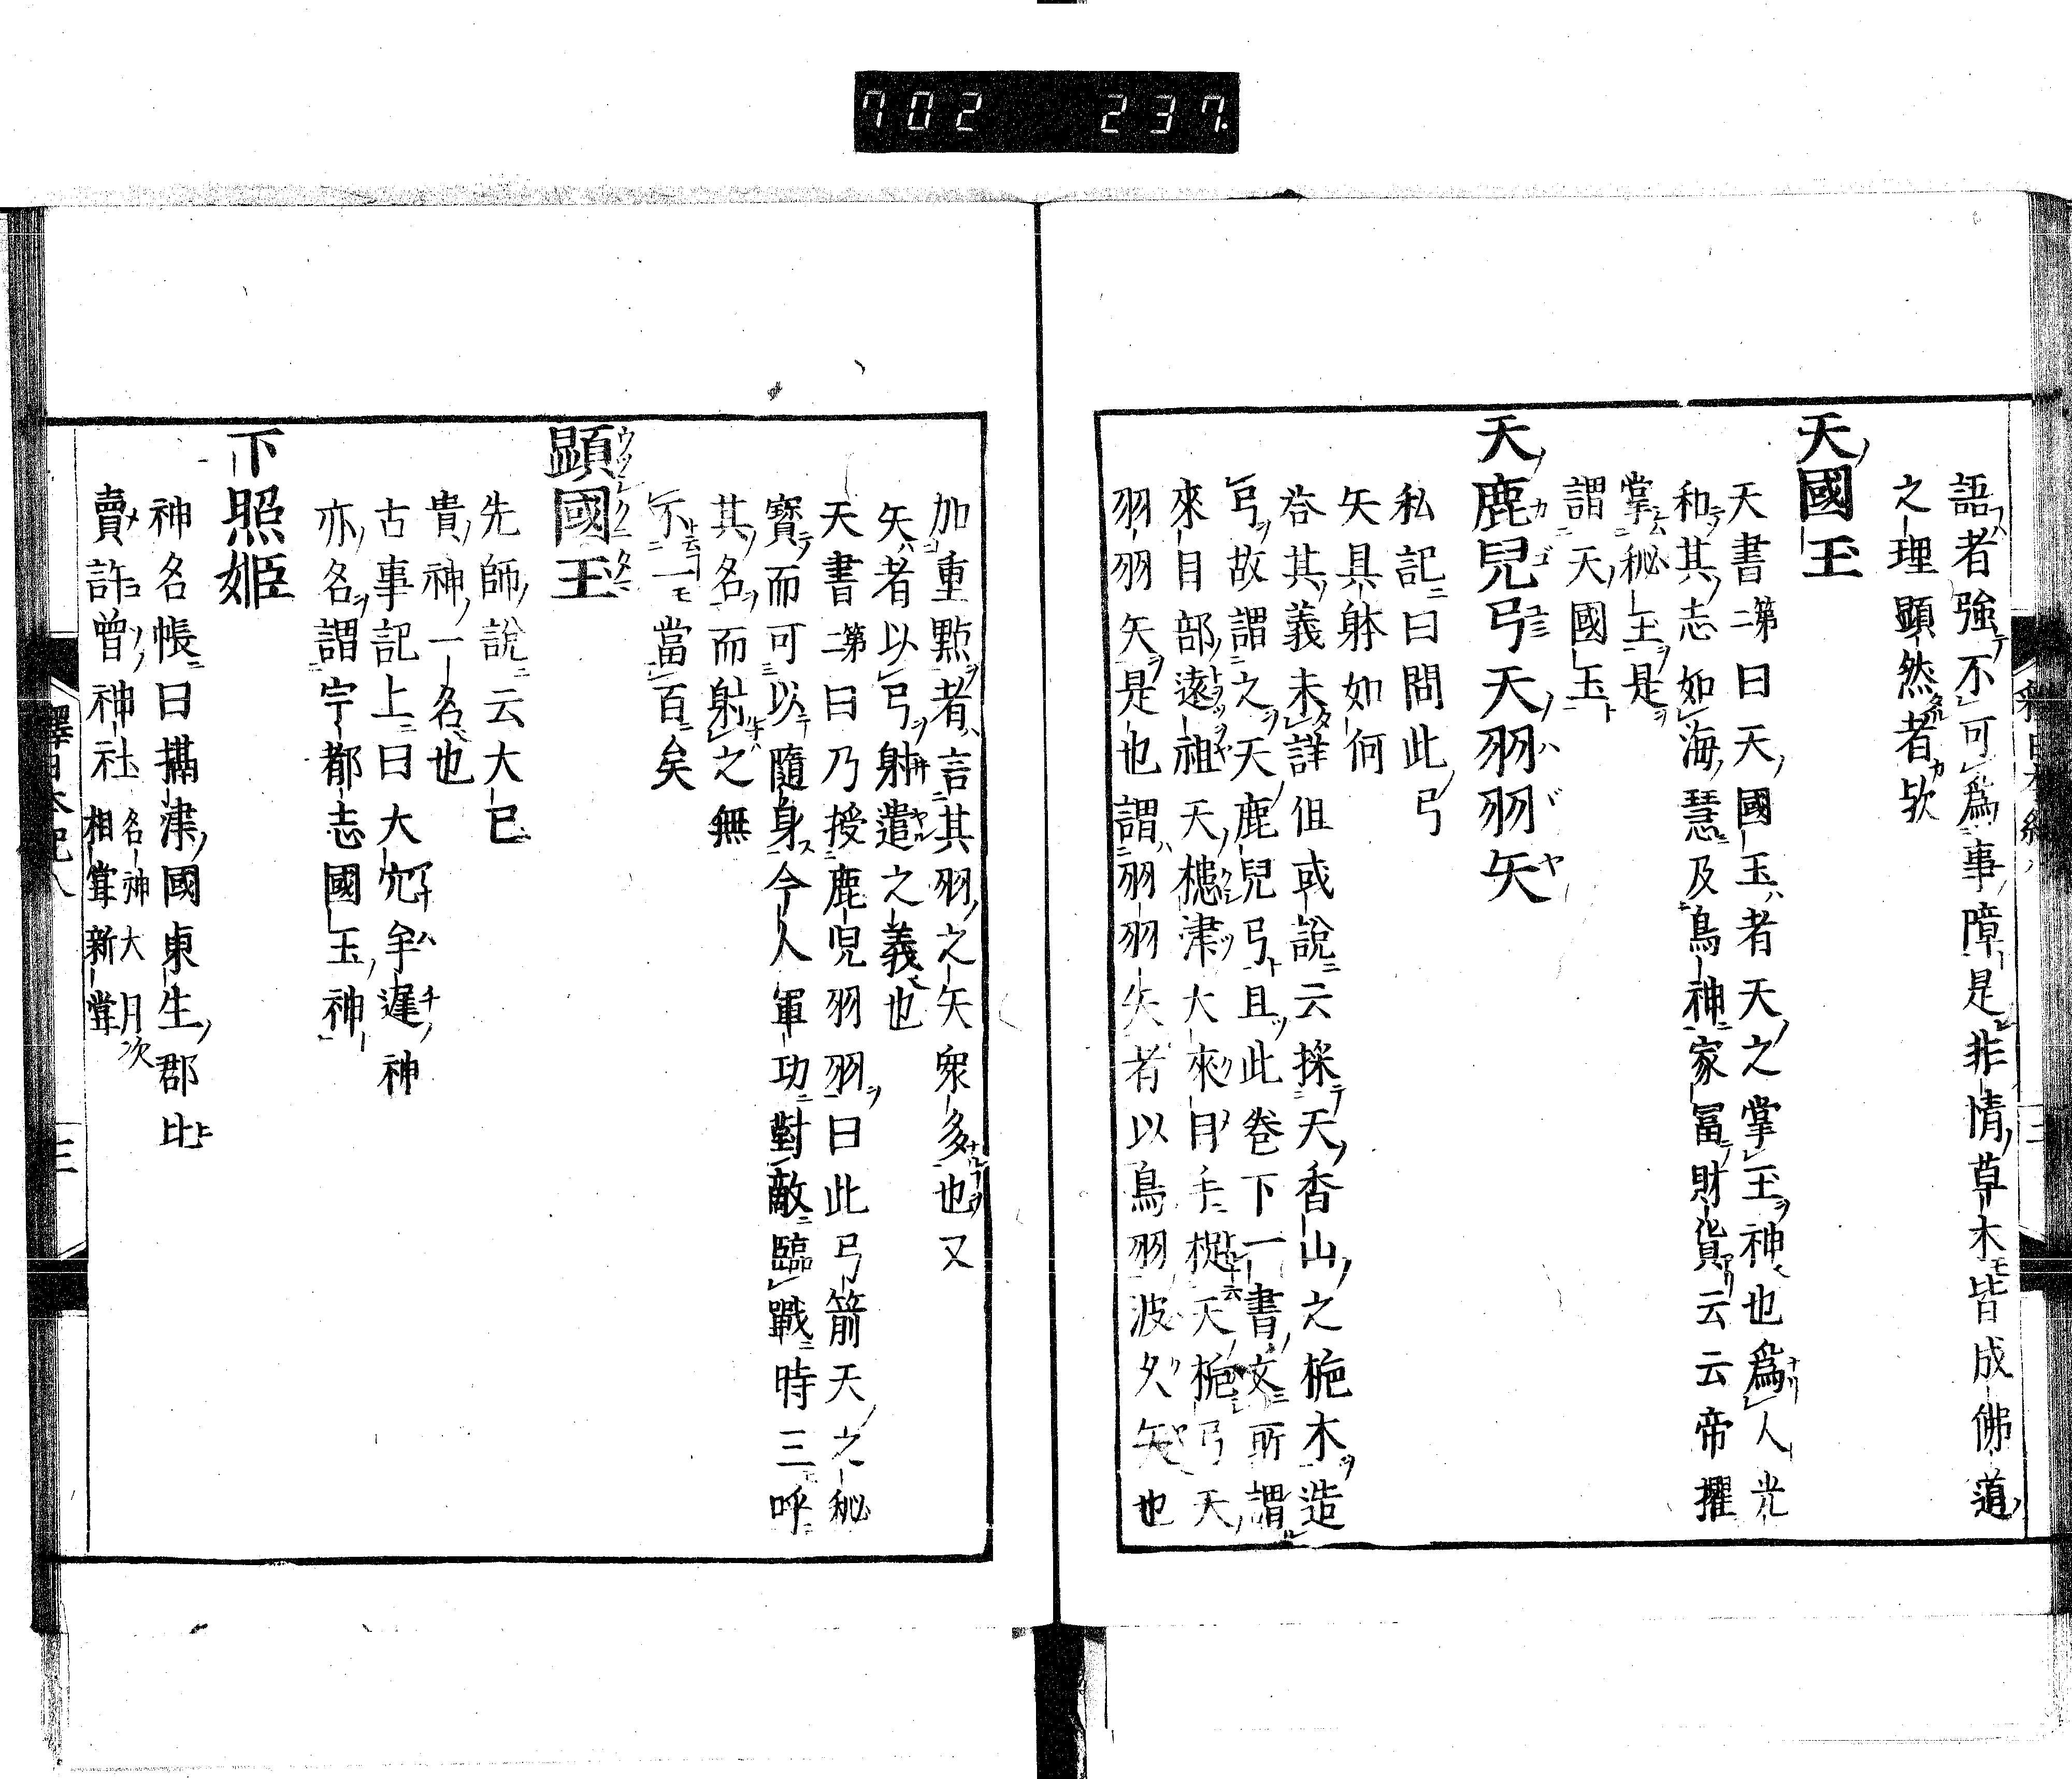 702 237.
語者強不可爲事障是非情草木皆成佛道
之理顯然者欤
天國玉
天書第二曰天國玉者天之掌玉神也爲人光
和其志如海慧及鳥神家冨財貨云云帝擢
掌秘玉是
謂天國玉
天鹿兒弓天羽羽矢
私記曰問此弓
矢具躰如何
荅其義未詳但或說云採天香山之梔木造
弓故謂之天鹿兒弓且此卷下一書文所謂
來目部遠祖天槵津大來目手捉天梔弓天
羽羽矢是也謂羽羽矢者以鳥羽波久矢也
加重㸃者言其羽之矢衆多也又
矢者以弓射遣之義也
天書第二曰乃授鹿兒羽羽曰此弓箭天之秘
寶而可以隨身今人軍功對敵臨戰時三呼
其名而射之無
不一當百矣
顯國玉
先師說云大已
貴神一名也
古事記上曰大穴牟遲神
亦名謂宇都志國玉神
下照姫
神名帳曰攝津國東生郡比
賣許曾神社名神大月次相甞新甞
釋日本紀八
三